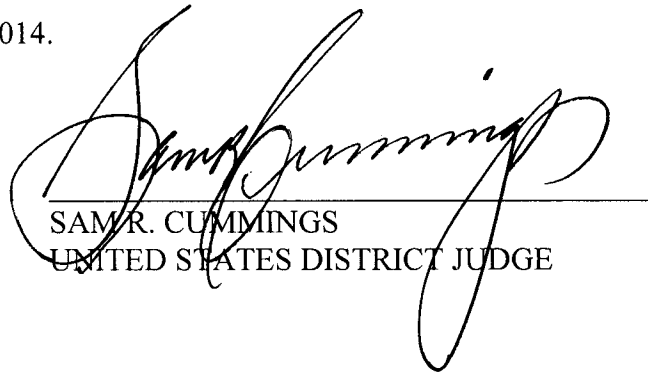 014.
Sam R Cummings
SAM R. CUMMINGS
UNITED STATES DISTRICT JUDGE